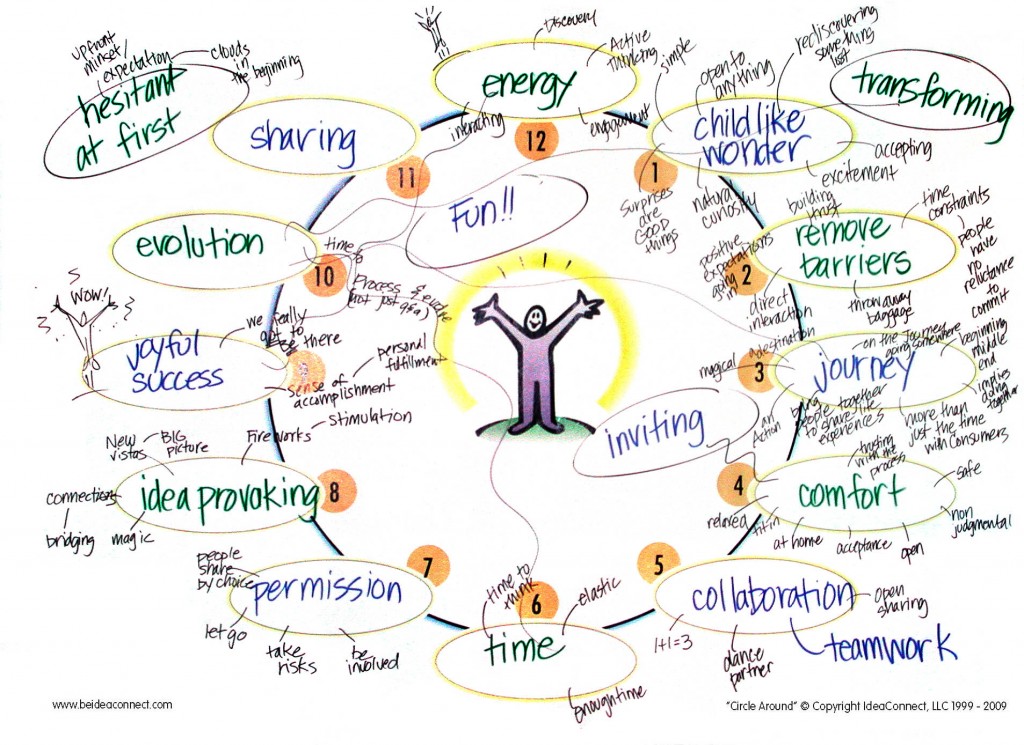 upfront
minset/
expectation
clouds
in
the beginning
hesitant
at first
sharing
11
energy
12
Discovery
Active
Thinking
interacting
engagement
simple
open to
anything
rediscovering
something
lost
transforming
child like
wonder
1
accepting
excitement
natural
curiosity
Surprises
are
GOOD
things
Fun!!
evolution
10
time &
Process & evolve
(not just q&a)
building
trust
remove
barriers
2
time
constraints
people
have
no
reluctance
to
commit
positive
expectations
going
in
direct
interaction
throw away
baggage
WOW!
joyful
success
we really
got to
be there
sense of
accomplishment
personal
fulfillment
journey
3
magical
a destination
on the Journey
going somewhere
beginning
middle
end
implies
going
together
bring
people together
to share life
experiences
more than
just the time
with consumers
an
Action
inviting
New
vistas
BIG
picture
Fireworks
stimulation
idea provoking
8
connections
bridging
magic
comfort
4
trusting
with the
process
safe
non
judgmental
open
acceptance
at home
relaxed
people
share
by choice
permission
7
let go
take
risks
be
involved
time to
think
6
elastic
time
enough time
5
collaboration
open
sharing
1+1=3
dance
partner
teamwork
www.beideaconnect.com
"Circle Around" © Copyright IdeaConnect, LLC 1999 - 2009